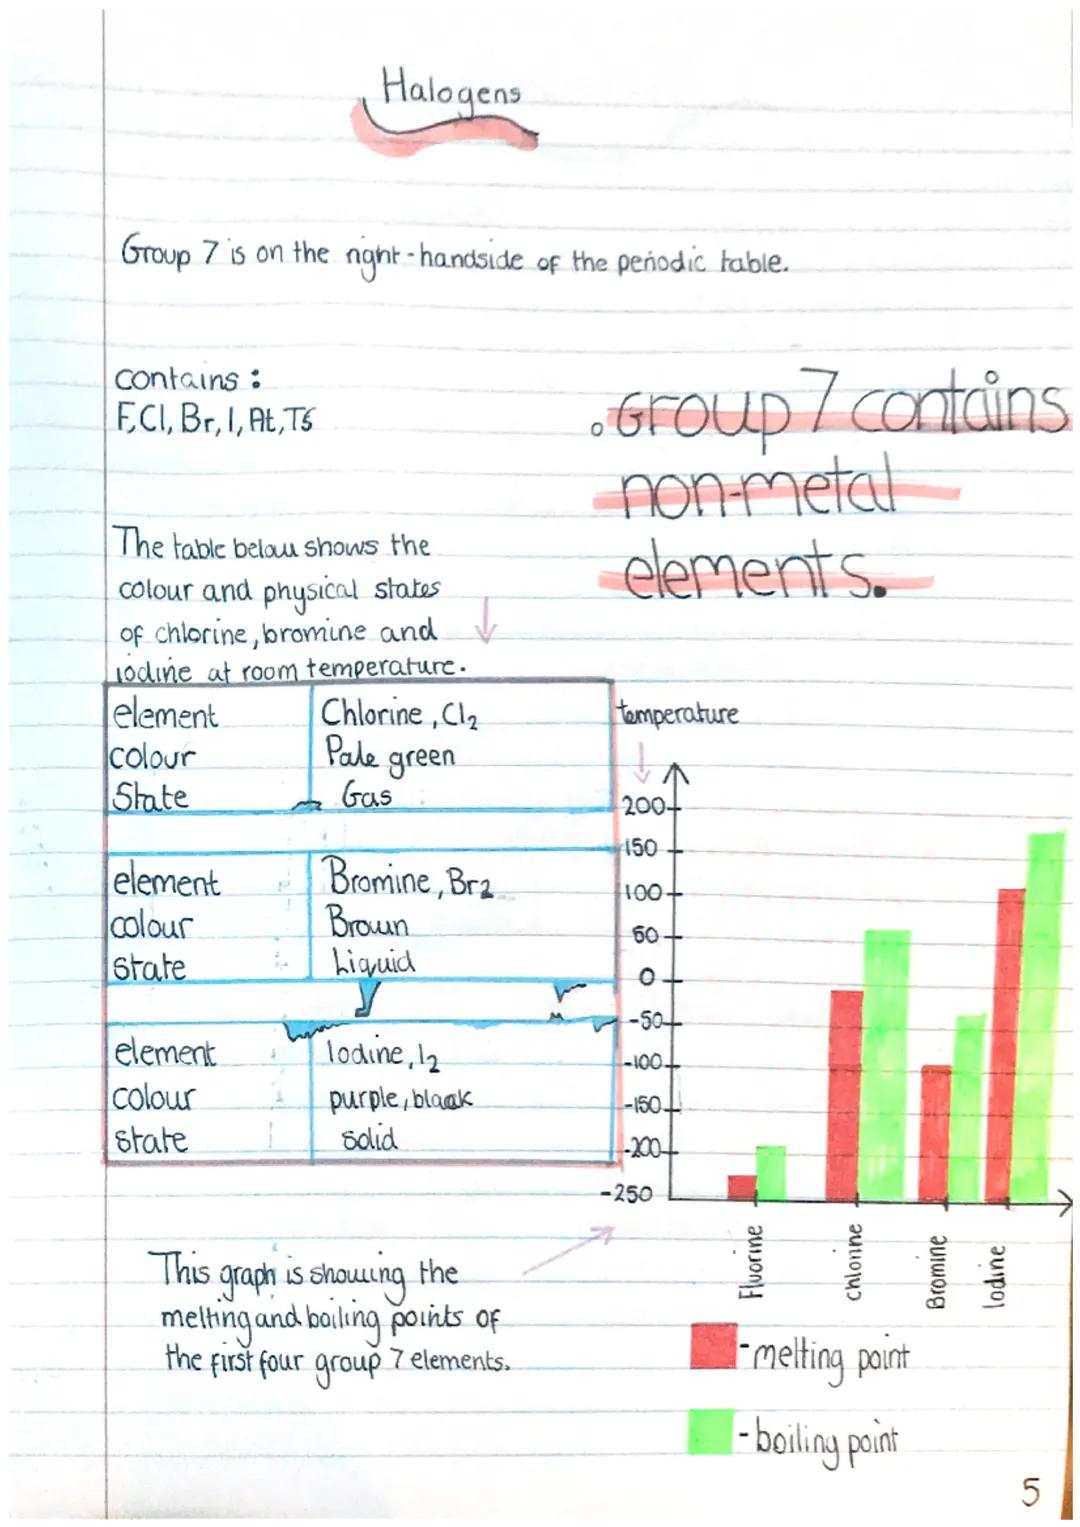 Halogens
Group 7 is on the right-handside of the periodic table.
contains :
F,Cl, Br, I, At, Ts
. Group 7 contains
non-metal
elements.
The table below shows the
colour and physical states
of chlorine, bromine and
iodine at room temperature.
element Chlorine, Cl₂
colour Pale green
State Gas
element Bromine, Br₂
colour Brown
state Liquid
element Iodine, I₂
colour purple, black
state solid
temperature
200
150
100
50
0
-50
-100
-150
-200
-250
Fluorine
chlorine
Bromine
Iodine
This graph is showing the
melting and boiling points of
the first four group 7 elements.
-melting point
-boiling point
5